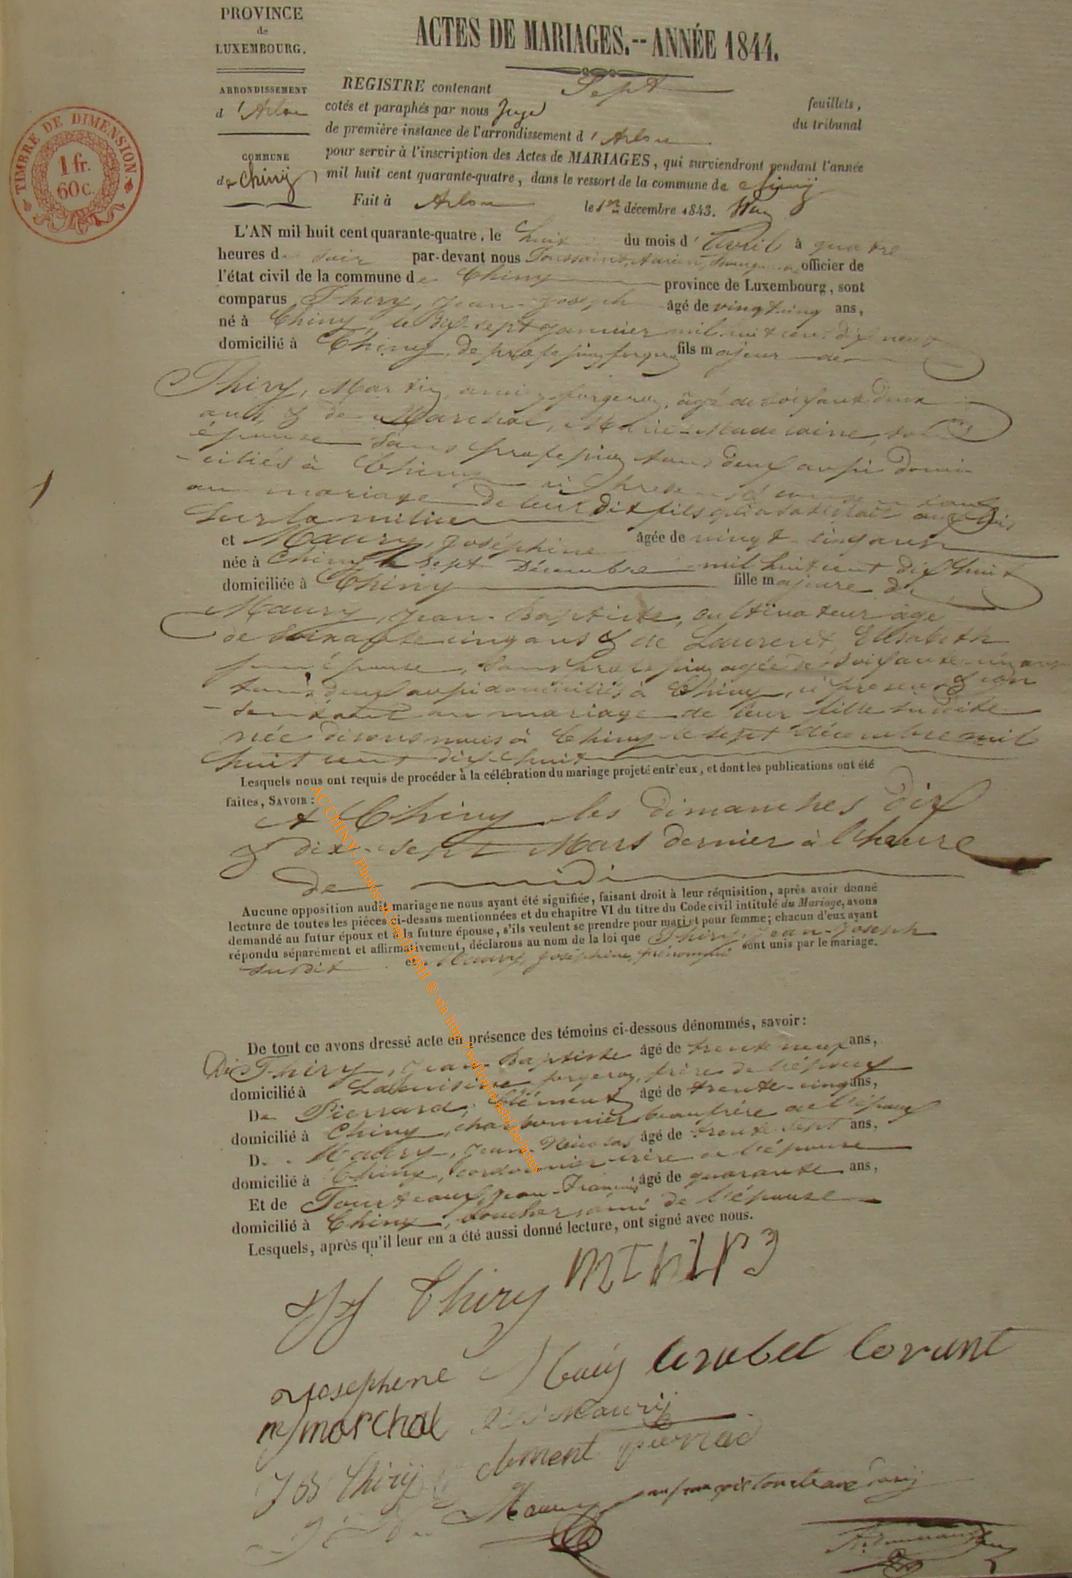 PROVINCE
de
LUXEMBOURG.
ACTES DE MARIAGES.--ANNÉE 1844.
ARRONDISSEMENT
d'Arlon
COMMUNE
de Chiny
TIMBRE DE DIMENSION
1 fr.
60 c.
REGISTRE contenant Sept feuillets,
cotés et paraphés par nous Juge du tribunal
de première instance de l'arrondissement d'Arlon
pour servir à l'inscription des Actes de MARIAGES, qui surviendront pendant l'année
mil huit cent quarante-quatre, dans le ressort de la commune de Chiny
Fait à Arlon le 1er décembre 1843.
1
L'AN mil huit cent quarante-quatre, le huit du mois d'Avril à quatre
heures du soir par-devant nous Toussaint, officier de
l'état civil de la commune de Chiny province de Luxembourg, sont
comparus Thiry, Jean-Joseph âgé de vingt cinq ans,
né à Chiny, le dix sept janvier mil huit cent dix neuf
domicilié à Chiny, de profession forgeron fils majeur de
Thiry, Martin, forgeron, âgé de soixante deux
ans, & de Marchal, Marie-Madelaine, son
épouse sans profession tous deux aussi domi-
-ciliés à Chiny ici présents
au mariage de leur dit fils qui a satisfait aux lois
sur la milice
et Maury, Joséphine âgée de vingt-cinq ans
née à Chiny le Sept Décembre mil huit cent dix huit
domiciliée à Chiny fille majeure de
Maury, Jean-Baptiste, cultivateur âgé
de soixante cinq ans & de Laurent, Elisabeth
son épouse, sans profession agée de soixante un ans
tous deux aussi domiciliés à Chiny, ici présens & con
-sentant au mariage de leur fille susdite
née disons nous à Chiny le sept décembre mil
huit cent dix huit
Lesquels nous ont requis de procéder à la célébration du mariage projeté entr'eux, et dont les publications ont été
faites, SAVOIR:
A Chiny les dimanches dix
& dix-sept Mars dernier à l'heure
de midi
Aucune opposition audit mariage ne nous ayant été signifiée, faisant droit à leur réquisition, après avoir donné
lecture de toutes les pièces ci-dessus mentionnées et du chapitre VI du titre du Code civil intitulé du Mariage, avons
demandé au futur époux et à la future épouse, s'ils veulent se prendre pour mari et pour femme; chacun d'eux ayant
répondu séparément et affirmativement, déclarons au nom de la loi que Thiry, Jean-Joseph
susdit et Maury, Joséphine, prénommée sont unis par le mariage.
De tout ce avons dressé acte en présence des témoins ci-dessous dénommés, savoir:
De Thiry, Jean-Baptiste âgé de trente neuf ans,
domicilié à forgeron, frère de l'époux
De Pierrard, Clément âgé de trente-cinq ans,
domicilié à Chiny, charbonnier beau frère de l'époux
D. Maury, Jean-Nicolas âgé de trente sept ans,
domicilié à Chiny, cordonnier frère de l'épouse
Et de Tourteaux, Jean-François âgé de quarante ans,
domicilié à Chiny, boucher, ami de l'épouse
Lesquels, après qu'il leur en a été aussi donné lecture, ont signé avec nous.
JJ Thiry
Josephene
mj marchal Maury
JB Thiry clement pierrard
Maury